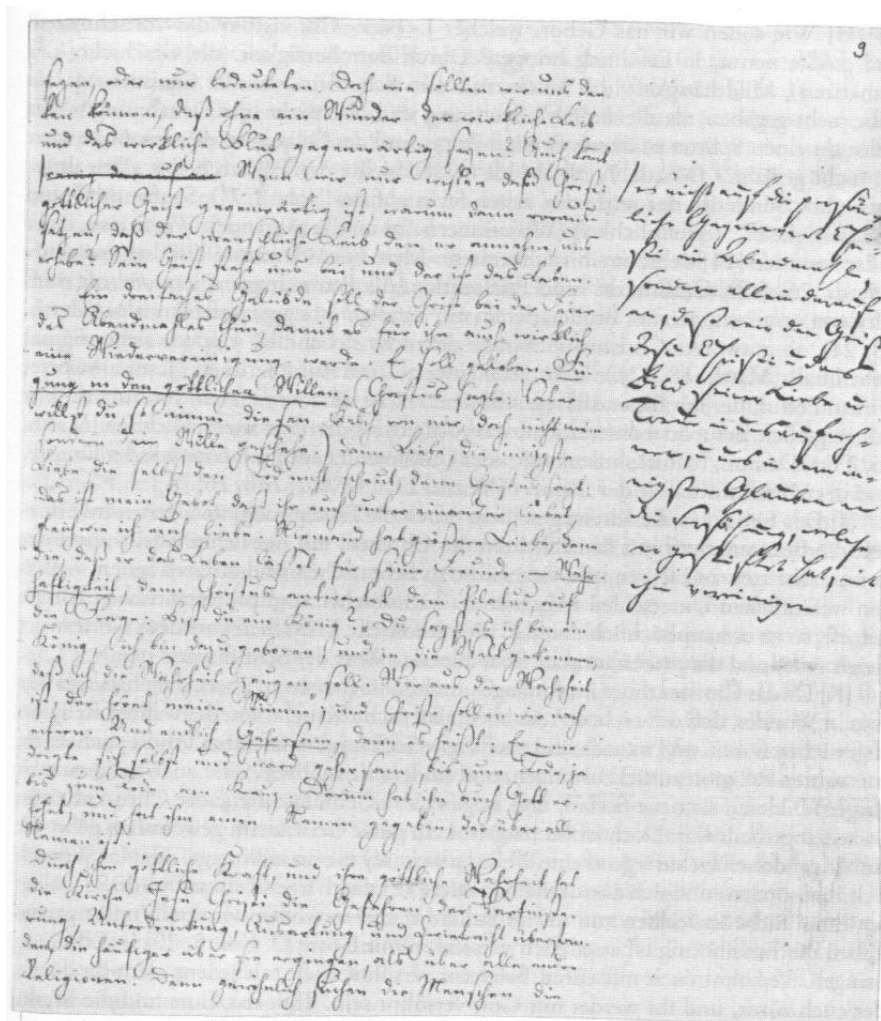 9
seyen, oder nur bedeuteten. Doch wie sollen wir uns den
ken können, daß ohne ein Wunder der wirkliche Leib
und das wirkliche Blut gegenwärtig seyen. Auch komt
Wenn wir nur wissen daß Christi
göttlicher Geist gegenwärtig ist, warum dann voraus
setzen, daß der menschliche Leib, den er annahm, uns
Sein Geist steht uns bei und der ist das Leben.
Ein dreifaches Gelübde soll der Christ bei der Feier
des Abendmahles thun, damit es für ihn auch wirklich
eine Wiedervereinigung werde. Er soll geloben: Fü
gung in den göttlichen Willen, (Christus sagte: Vater
willst du, so nimm diesen Kelch von mir, doch nicht mein
sondern dein Wille geschehe,) dann Liebe, die innigste
Liebe die selbst den Tod nicht scheut, denn Christus sagt
das ist mein Gebot daß ihr euch untereinander liebet
ich euch liebe. Niemand hat größere Liebe denn
die daß er das Leben lasset, für seine Freunde. Wahr
haftigkeit, denn Christus antwortet dem Pilatus auf
die Frage: Bist du ein König? Du sagst es ich bin ein
König, ich bin dazu geboren und in die Welt gekommen
daß ich die Wahrheit zeugen soll. Wer aus der Wahrheit
ist, der höret meine Stimme; und Christ soll nach
eifern. Und endlich Gehorsam denn es heißt: Er ernie
drigte sich selbst und ward gehorsam bis zum Tode, ja
bis zum Tode am Kreuz. Darum hat ihn auch Gott er
höhet, und hat ihm einen Namen gegeben, der über alle
Namen ist.
Durch ihre göttliche Kraft, und ihre göttliche Wahrheit hat
die Kirche Jesu Christi die Gefahren der
Unterdrückung, Ausartung und Zwietracht überstan
den, die häufiger über sie ergingen als über alle andre
Religionen. Denn gewöhnlich suchen die Menschen die
es nicht auf die persön
liche Gegenwart Chri
sti im Abendmahl
sondern allein darauf
an, daß wir den Geist
Jesu Christi u. das
Bild seiner Liebe u.
Treue in uns aufneh
men, u. uns dem in
nigsten Glauben an
die Verheissung, welche
er gestiftet hat, mit
ihm vereinigen